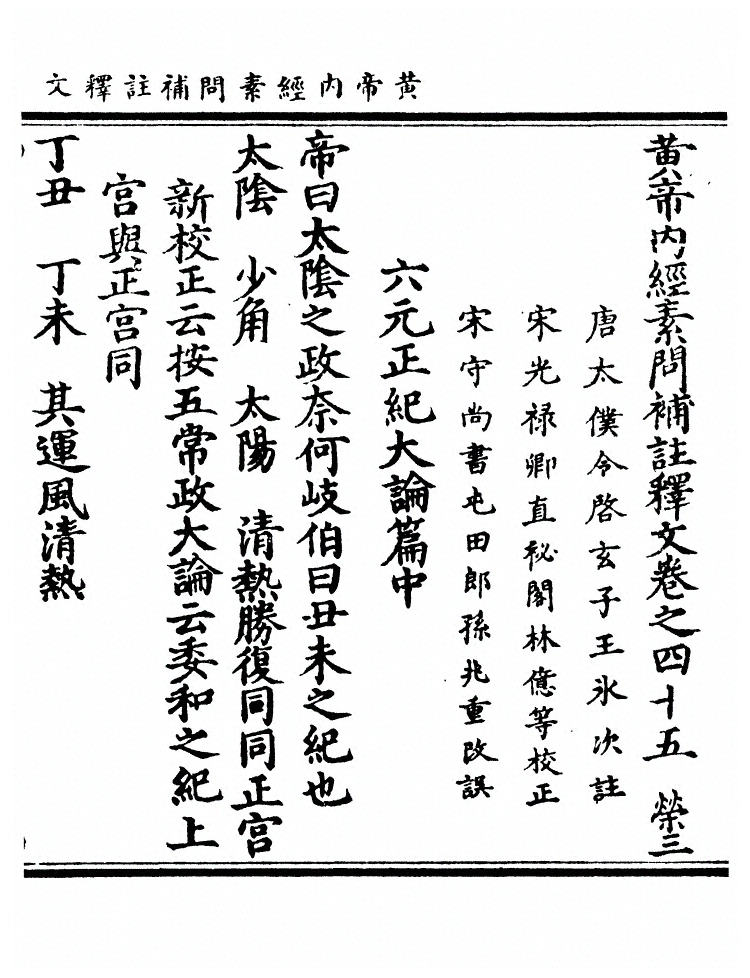 黄帝内經素問補註釋文
黄帝内經素問補註釋文卷之四十五　榮三
唐太僕令啓玄子王氷次註
宋光禄卿直秘閣林億等校正
宋守尚書屯田郎孫兆重改誤
六元正紀大論篇中
帝曰太陰之政奈何岐伯曰丑未之紀也
太陰　少角　太陽　清熱勝復同同正宫
新校正云按五常政大論云委和之紀上
宫與正宫同
丁丑　丁未　其運風清熱